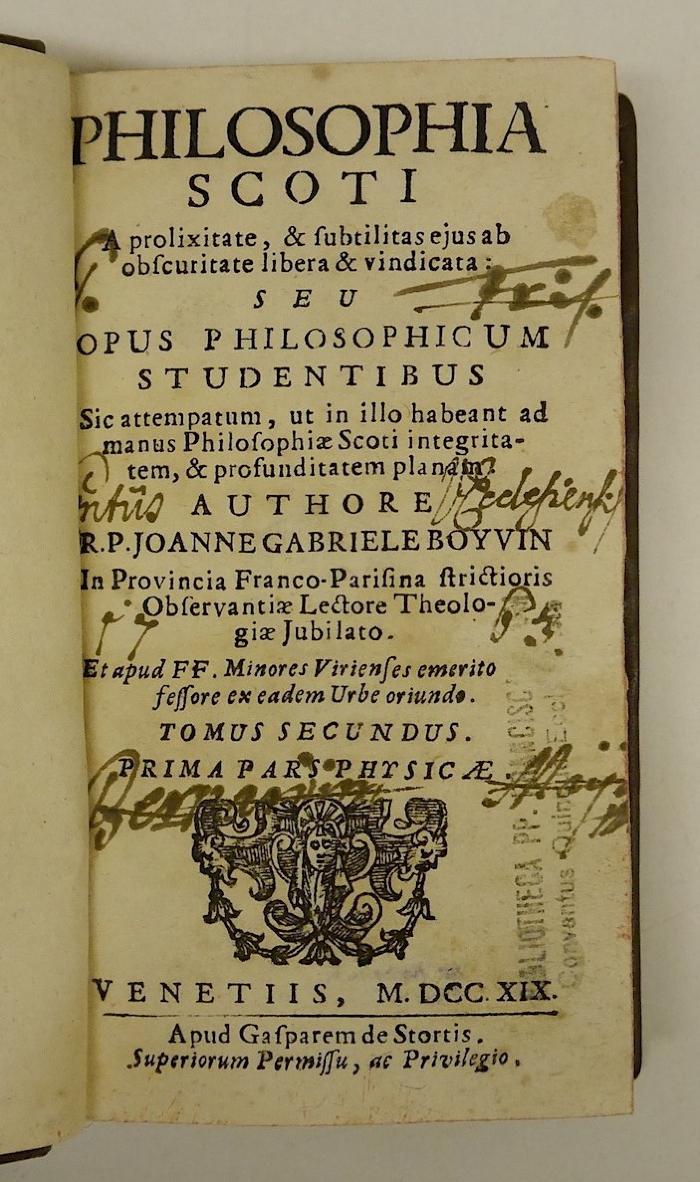 PHILOSOPHIA
SCOTI
A prolixitate, & ſubtilitas ejus ab
obſcuritate libera & vindicata:
SEU
OPUS PHILOSOPHICUM
STUDENTIBUS
Sic attempatum, ut in illo habeant ad
manus Philoſophiæ Scoti integrita-
tem, & profunditatem planam.
AUTHORE
R.P. JOANNE GABRIELE BOYVIN
In Provincia Franco-Pariſina ſtrictioris
Obſervantiæ Lectore Theolo-
giæ Jubilato.
17
Et apud FF. Minores Virienſes emerito
feſſore ex eadem Urbe oriundo.
TOMUS SECUNDUS.
PRIMA PARS PHYSICÆ.
VENETIIS, M. DCC. XIX.
Apud Gaſparem de Stortis.
Superiorum Permiſſu, ac Privilegio.
BLIOTHECA PP.
Conventus Quin Eccl